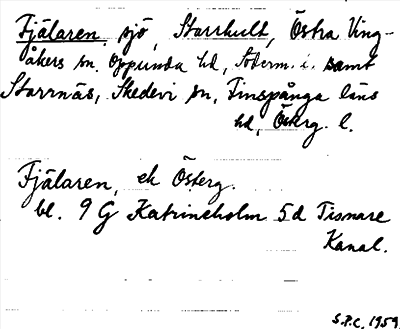 Fjälaren, sjö, Starrhult, Östra Ving-
åkers sn. Oppunda hd, Söderm. l. samt
Starrnäs, Skedevi sn, Finspånga läns
hd, Österg. l.
Fjälaren, ek Österg.
bl. 9 G Katrineholm 5 d Tisnare
Kanal.
S.P.C. 1959